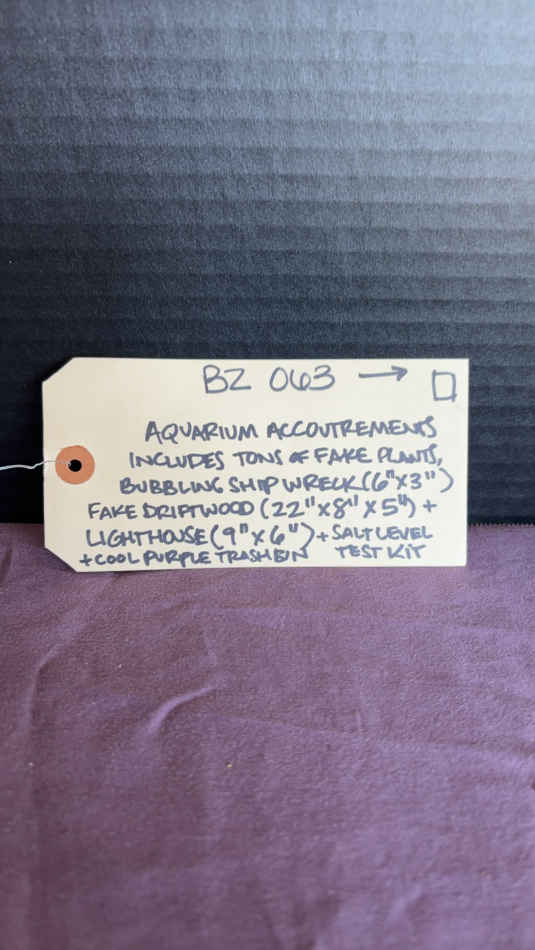 BZ 063 → □
AQUARIUM ACCOUTREMENTS
INCLUDES TONS OF FAKE PLANTS,
BUBBLING SHIP WRECK (6"X3")
FAKE DRIFTWOOD (22"X8"X5") +
LIGHTHOUSE (9"X6") + SALT LEVEL
+ COOL PURPLE TRASH BIN TEST KIT